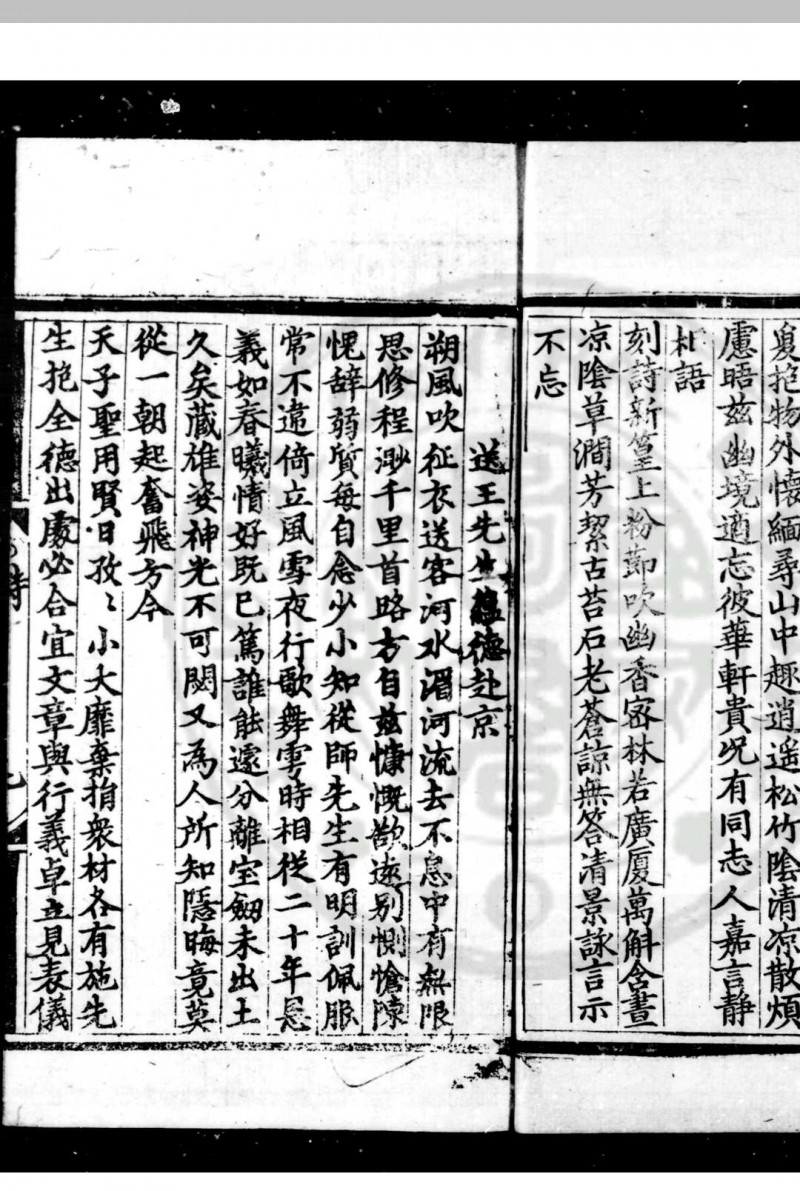 夐抱物外懷緬尋山中趣逍遥松竹陰清凉散煩
慮晤兹幽境適忘彼華軒貴况有同志人嘉言静
相語
刻詩新篁上粉節吹幽香宻林若廣厦萬斛含晝
凉陰草澗芳絜古苔石老蒼諒無答清景詠言示
不忘
送王先生蘊德赴京
朔風吹征衣送客河水湄河流去不息中有無限
思修程渺千里首路方自兹慷慨欲遠别惻愴陳
愧辞弱質每自念少小知從師先生有明訓佩服
常不違倚立風雪夜行歌舞雩時相從二十年恩
義如春曦情好既已篤誰能遽分離宝劒未出土
久矣蔵雄姿神光不可閟又為人所知隱晦竟莫
從一朝起奮飛方今
天子聖用賢日孜〻小大靡棄捐衆材各有施先
生抱全德出處必合宜文章與行義卓立見表儀
詩